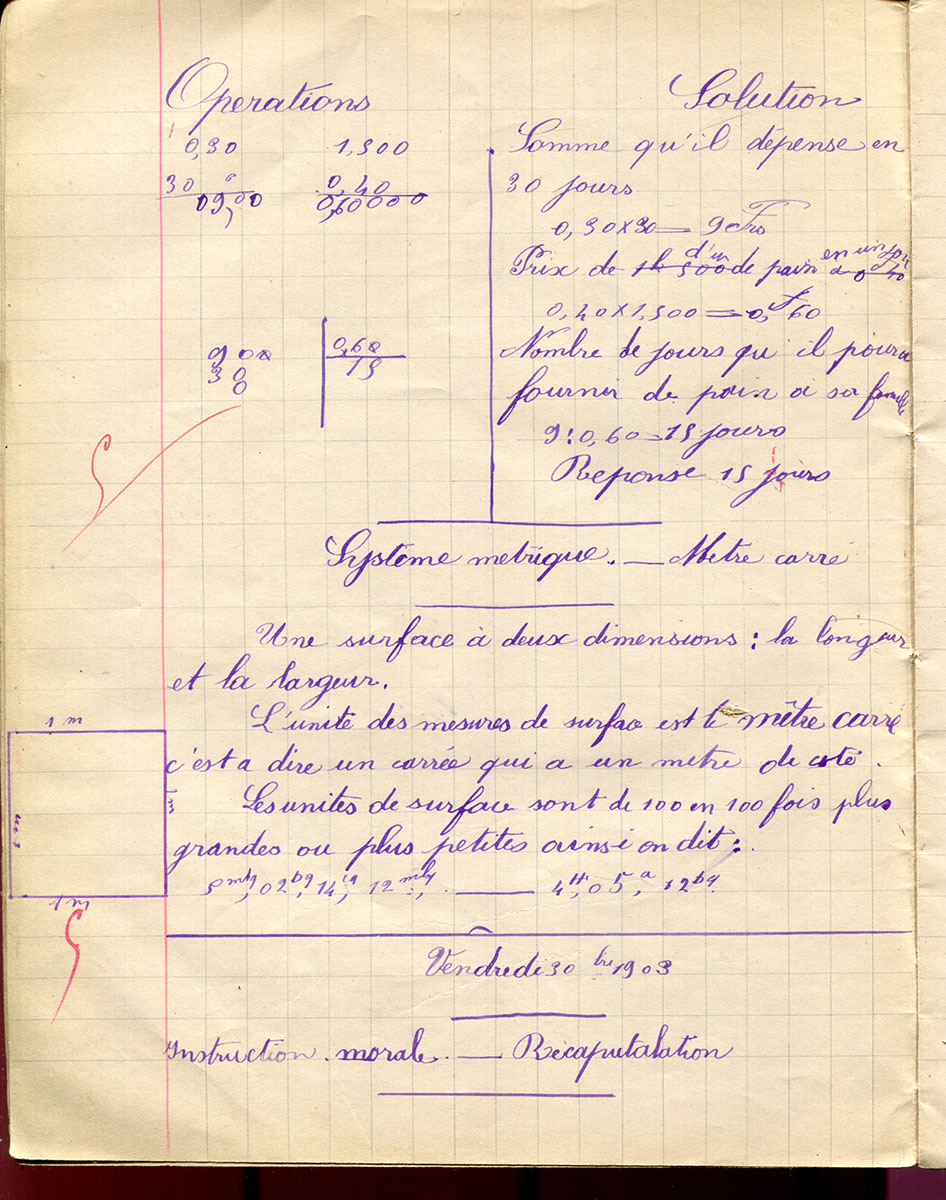 Operations
0,30 1,500
30 0,40
09,00 0,60000
900 0,60
30 15
0
Solution
Somme qu'il dépense en
30 jours
0,30×30 = 9 Frs
Prix de d'un de pain en un jour
0,40×1,500 = 0,f60
Nombre de jours qu il poura
fournir de pain a sa famille
9:0,60=15 jours
Reponse 15 jours
Système metrique. — Metre carré
Une surface à deux dimensions : la longeur
et la largeur.
L'unité des mesures de surface est le mêtre carré
c'est a dire un carrée qui a un metre de coté.
Les unites de surface sont de 100 en 100 fois plus
grandes ou plus petites ainsi on dit :
1 m
1 m
1 m
1 m
5mq, 02dq, 14cq, 12mq — 4H, 05a, 12
Vendredi 30 bre 1903
Instruction. morale. — Récaputalation